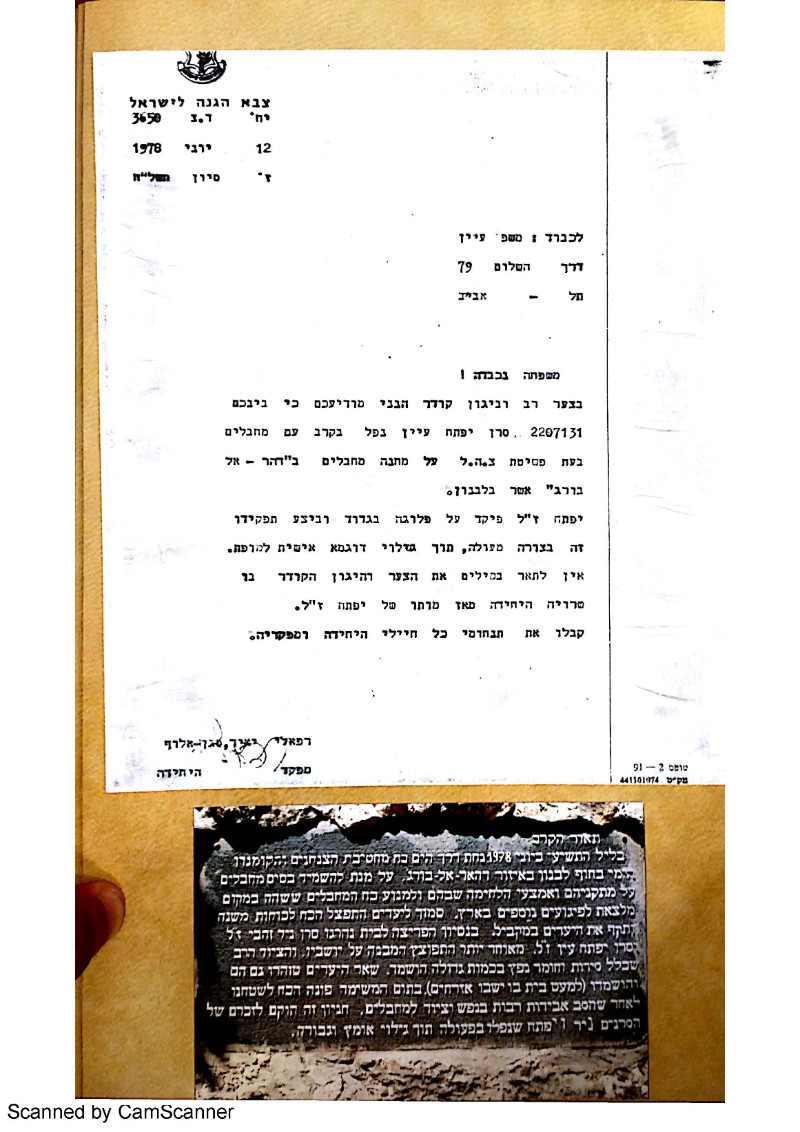 צבא הגנה לישראל
יח' ד.צ 3650
12 יוני 1978
ז' סיון תשל"ח
לכבוד : משפ' עיין
דרך השלום 79
תל - אביב
משפחה נכבדה !
בצער רב וביגון קודר הנני מודיעכם כי בינכם
2207131 סרן יפתח עיין נפל בקרב עם מחבלים
בעת פשיטת צ.ה.ל על מחנה מחבלים ב"דהר - אל
בורג" אשר בלבנון.
יפתח ז"ל פיקד על פלוגה בגדוד וביצע תפקידו
זה בצורה מעולה, תוך גילוי דוגמא אישית למופת.
אין לתאר במילים את הצער והיגון הקודר בו
שרויה היחידה מאז מותו של יפתח ז"ל.
קבלו את תנחומי כל חיילי היחידה ומפקדיה.
רפאלי יציך, סגן-אלוף
מפקד היחידה
טופס 2 — 91
מק"ט 441101974
תאור הקרב
בליל התשיעי ביוני 1978 נחת דרך הים כח מחטיבת הצנחנים והקומנדו
הימי בחוף לבנון באיזור דהאר-אל-בורג. על מנת להשמיד בסיס מחבלים
על מתקניהם ואמצעי הלחימה שבהם ולמנוע כח המחבלים ששהה במקום
מלצאת לפיגועים נוספים בארץ. סמוך ליעדים התפצל הכח לכוחות משנה
ותקף את היעדים במקביל. בנסיון הפריצה לבית נהרגו סרן ניר זהבי ז"ל
וסרן יפתח עין ז"ל. מאוחר יותר התפוצץ המבנה על יושביו, והציוד הרב
שכלל סירות וחומר נפץ בכמות גדולה הושמד. שאר היעדים טוהרו גם הם
והושמדו (למעט בית בו ישבו אזרחים). בתום המשימה פונה הכח לשטחנו
לאחר שהסב אבידות רבות בנפש וציוד למחבלים. חניון זה הוקם לזכרם של
הסרנים ניר ויפתח שנפלו בפעולה תוך גילוי אומץ וגבורה.
Scanned by CamScanner